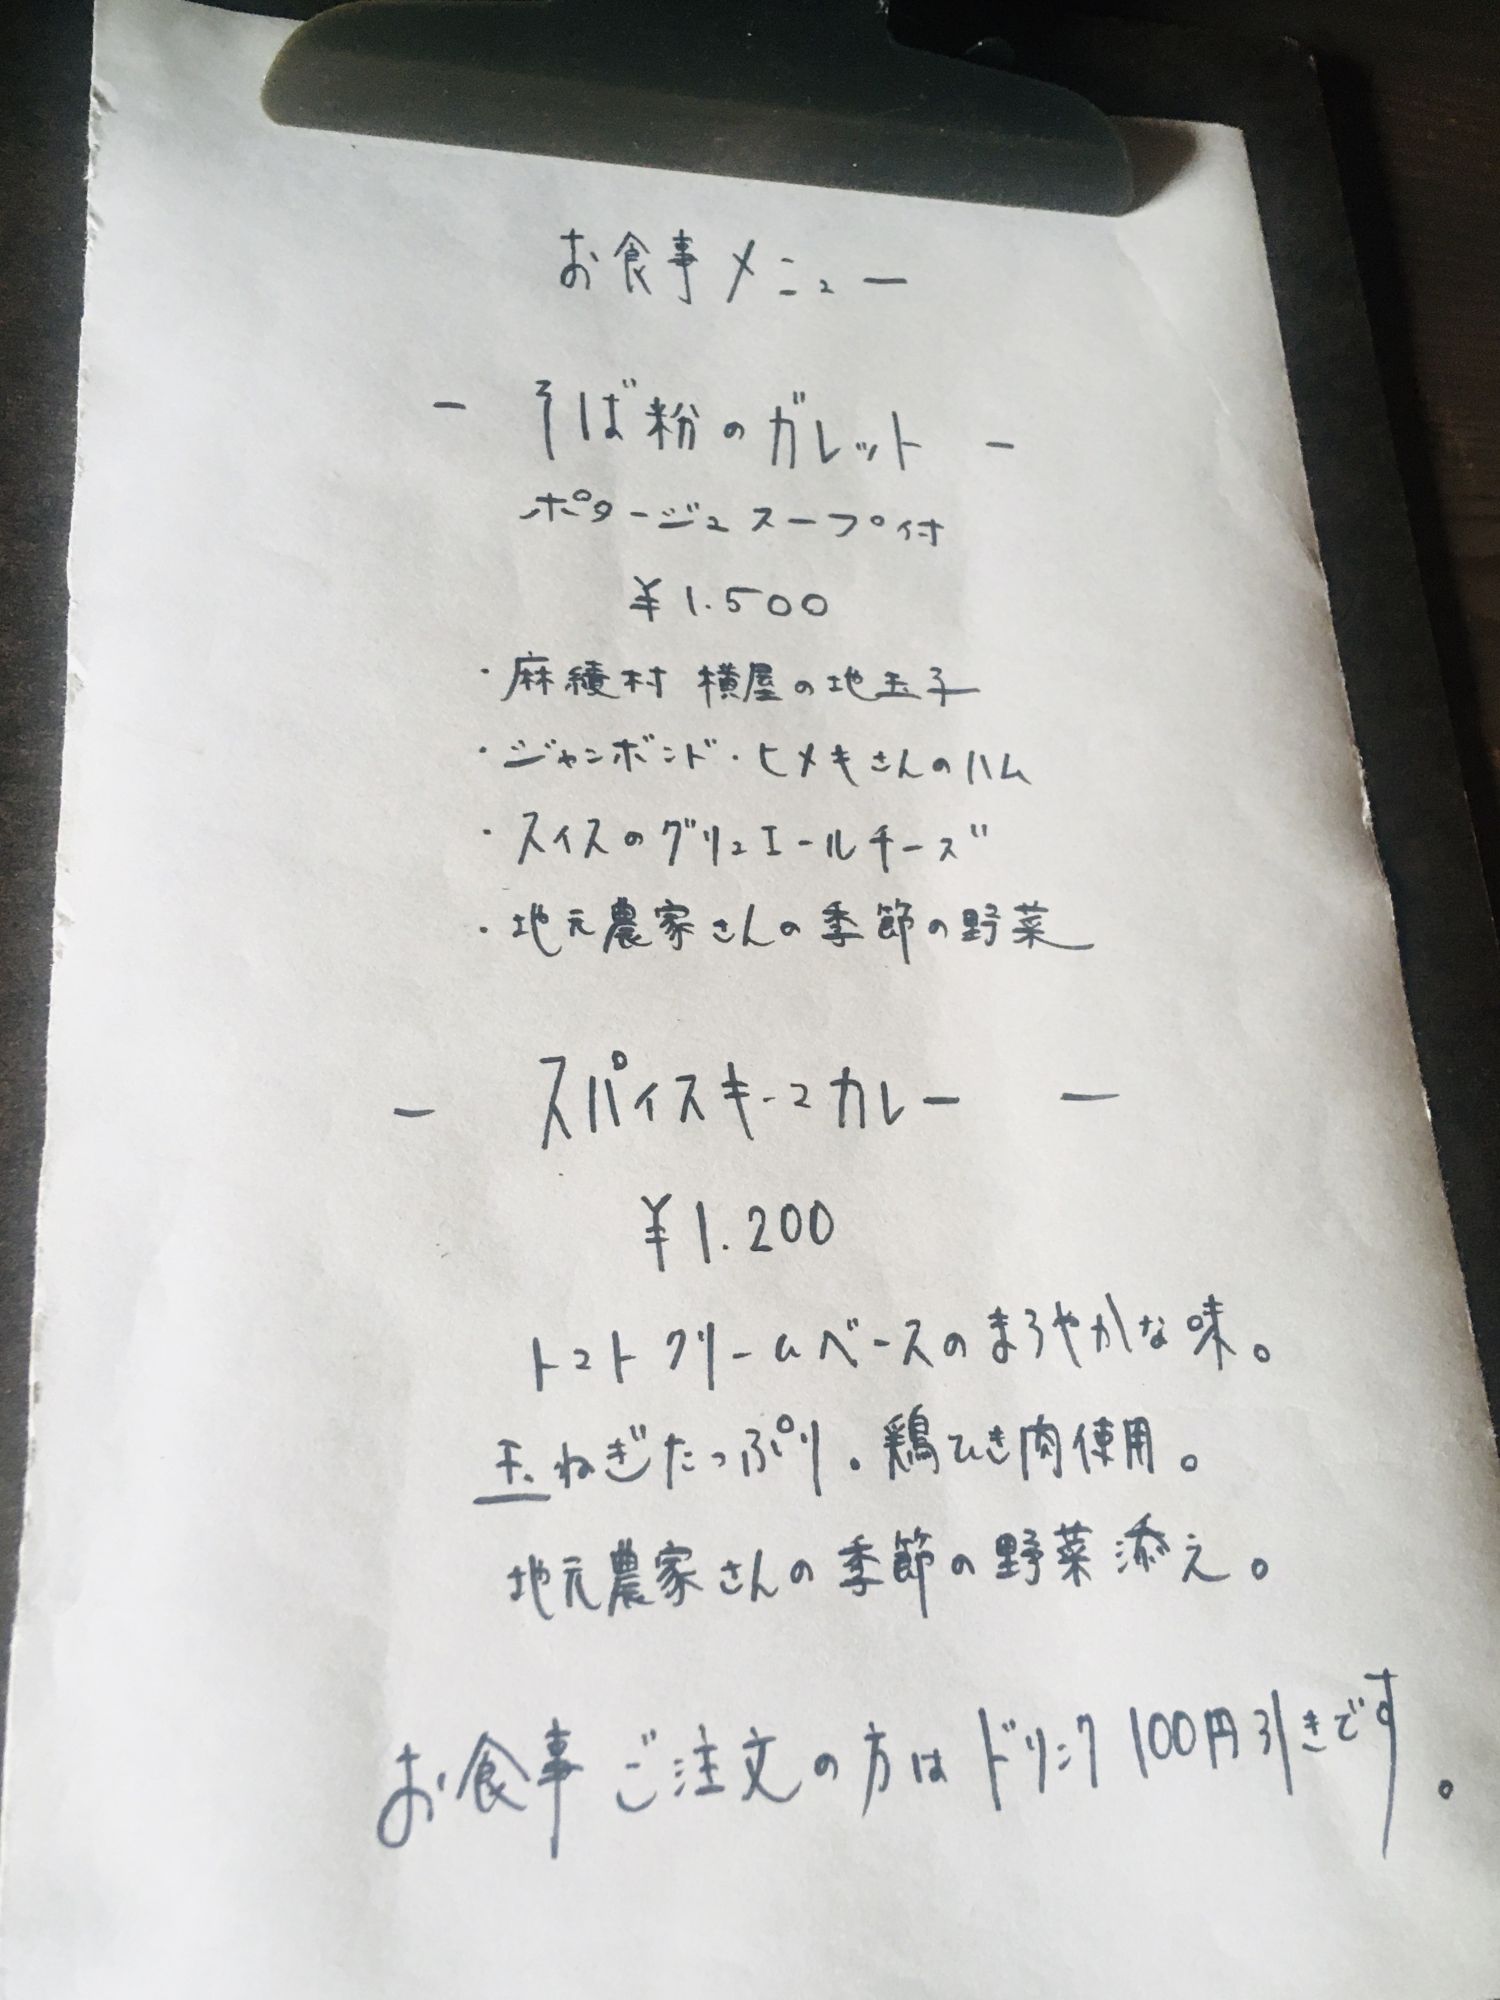 お食事メニュー
- そば粉のガレット -
ポタージュスープ付
¥1.500
・麻績村 横屋の地玉子
・ジャンボンド・ヒメキさんのハム
・スイスのグリュエールチーズ
・地元農家さんの季節の野菜
- スパイスキーマカレー -
¥1.200
トマトクリームベースのまろやかな味。
玉ねぎたっぷり。鶏ひき肉使用。
地元農家さんの季節の野菜添え。
お食事ご注文の方はドリンク100円引きです。